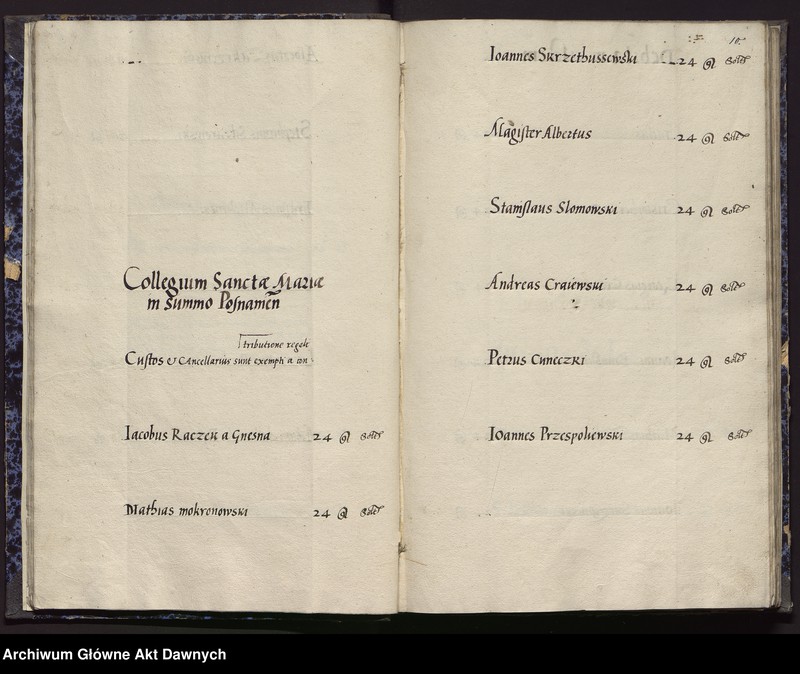 Collegium Sanctæ Mariæ
in summo Posnamen̄
tributione regali
Custos et Cancellarius sunt exempti a con
Iacobus Raczek a Gnesna 24 gl Solet
Mathias mokronowski 24 gl Solet
10.
Ioannes Skrzethussewski 24 gl Solet
Magister Albertus 24 gl Solet
Stanislaus Slomowski 24 gl Solet
Andreas Craiewski 24 gl Solet
Petrus Cuneczki 24 gl Solet
Ioannes Przespoliewski 24 gl Solet
Archiwum Główne Akt Dawnych